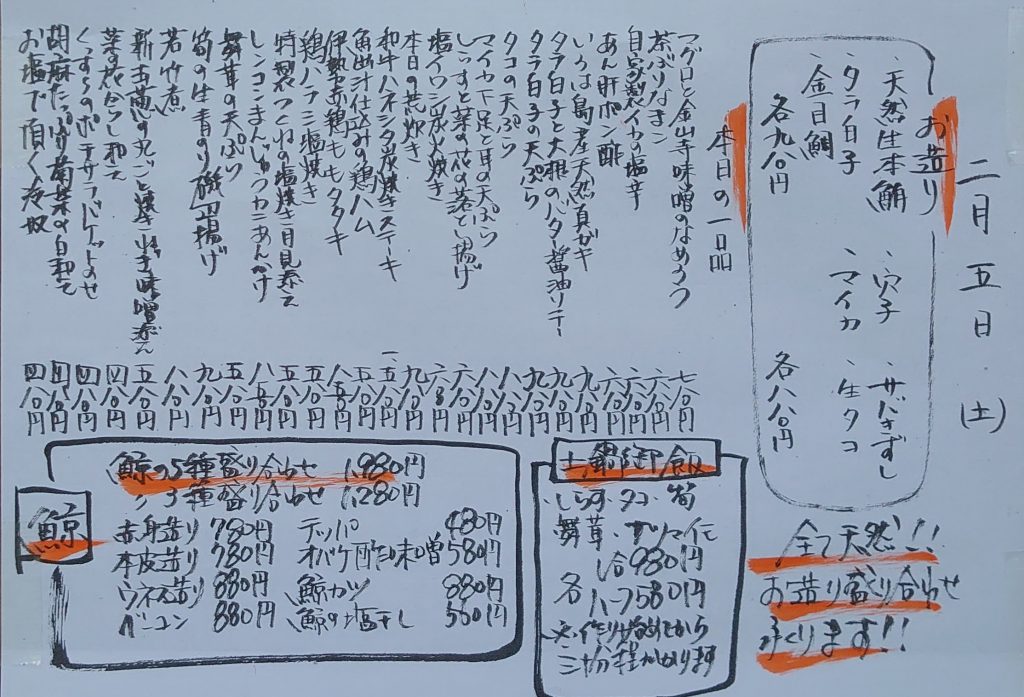 二月五日(土)
お造り
・天然生本鮪 ・穴子 ・サバきずし
・タラ白子 ・マイカ ・生タコ
・金目鯛
各九八〇円 各八八〇円
全て天然!!
お造り盛り合わせ
承ります!!
本日の一品
マグロと金山寺味噌のなめろう 七八〇円
茶ぶりなまこ 六八〇円
自家製イカの塩辛 六八〇円
あん肝ポン酢
いろは島産天然真ガキ
タラ白子と大根のバター醤油ソテー 九八〇円
タラ白子の天ぷら 九八〇円
タコの天ぷら 八八〇円
マイカ下足と耳の天ぷら 八八〇円
しらすと菜の花のかき揚げ 六八〇円
塩イワシ炭火焼き
本日の煮炊き
和牛ハネシタ炭焼きステーキ
魚出汁仕込みの鶏ハム 五八〇円
伊勢赤鶏ももタタキ
鶏ハラミ塩焼き 五八〇円
特製つくねの塩焼き 月見添え
レンコンまんじゅう カニあんかけ
舞茸の天ぷら 五八〇円
筍の生青のり磯辺揚げ 九八〇円
若竹煮 八八〇円
新玉葱の丸ごと焼き 出汁味噌添え 五八〇円
菜の花からし和え 四八〇円
くんすらのポテサラ バケットのせ 四八〇円
胡麻たっぷり菊菜の白和え 四八〇円
お塩で頂く冷奴 四八〇円
土鍋御飯
・しらす・タコ・筍
舞茸・サツマイモ
各 一合980円
ハーフ580円
※作り始めてから
三十分程かかります
鯨
鯨の5種盛り合わせ 1,980円
〃 3種盛り合わせ 1,280円
赤身造り 780円 テッパ 480円
本皮造り 780円 オバケ酢味噌 580円
ウネス造り 880円 鯨カツ 880円
ベーコン 880円 鯨の塩干し 580円